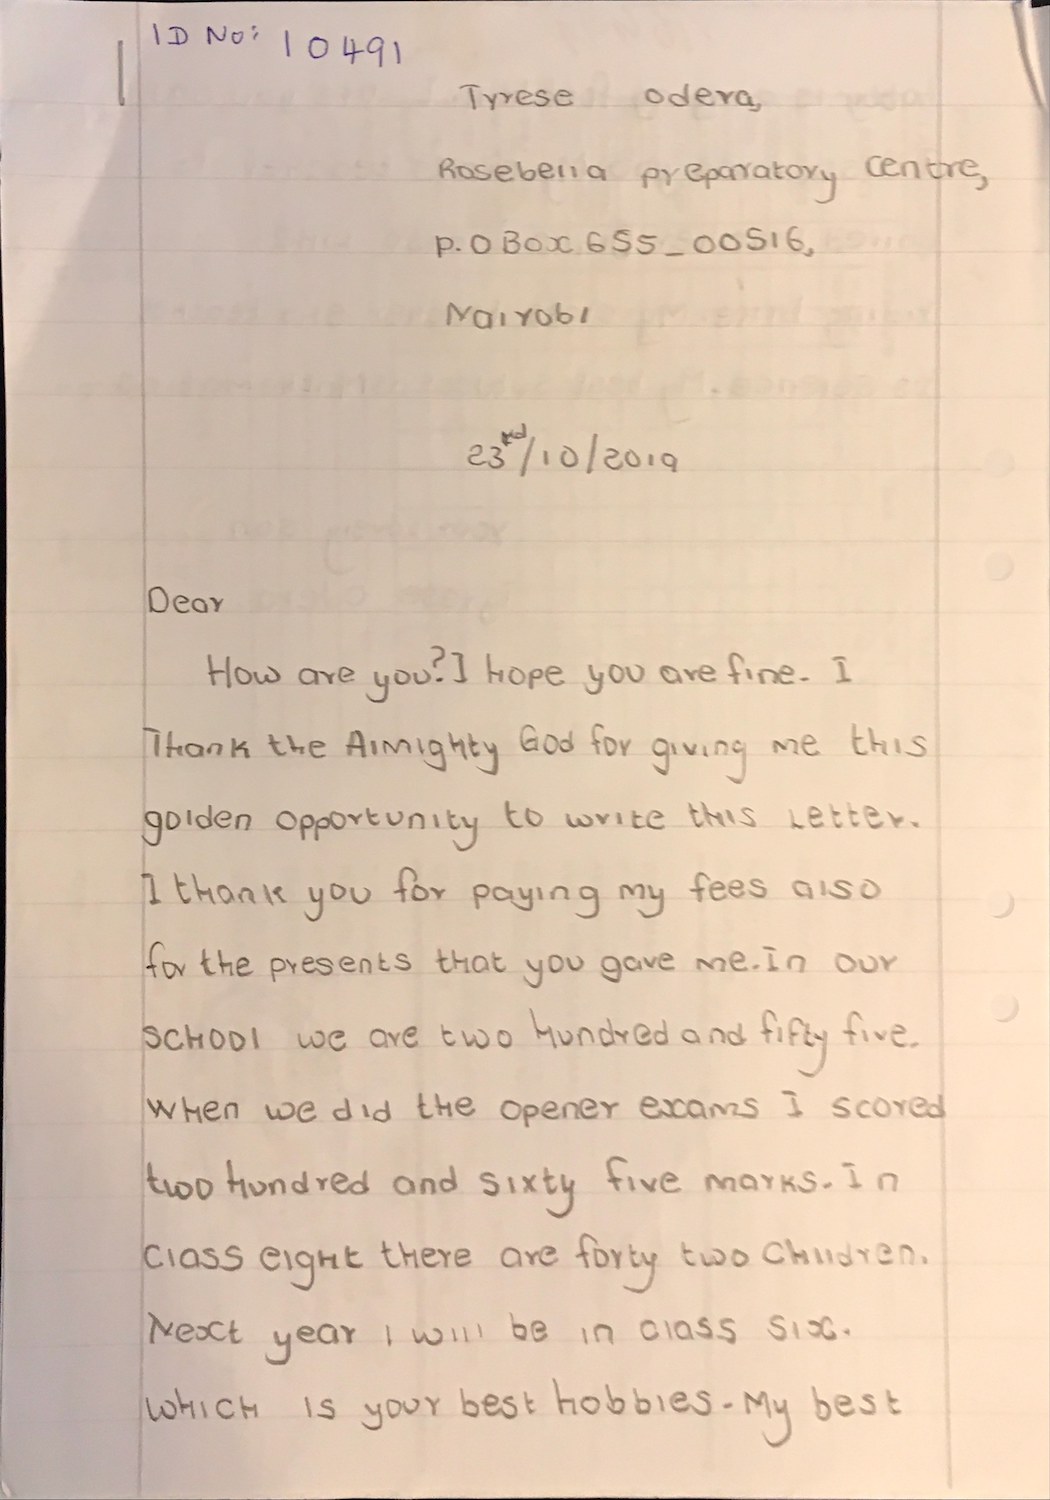 ID No: 10491
Tyrese Odera,
Rosebella preparatory Centre,
P.O Box 655_00516,
Nairobi
23rd/10/2019
Dear
How are you? I hope you are fine. I
Thank the Almighty God for giving me this
golden opportunity to write this Letter.
I thank you for paying my fees also
for the presents that you gave me. In our
school we are two hundred and fifty five.
When we did the opener exams I scored
two hundred and sixty five marks. In
Class eight there are forty two Children.
Next year I will be in class six.
Which is your best hobbies. My best